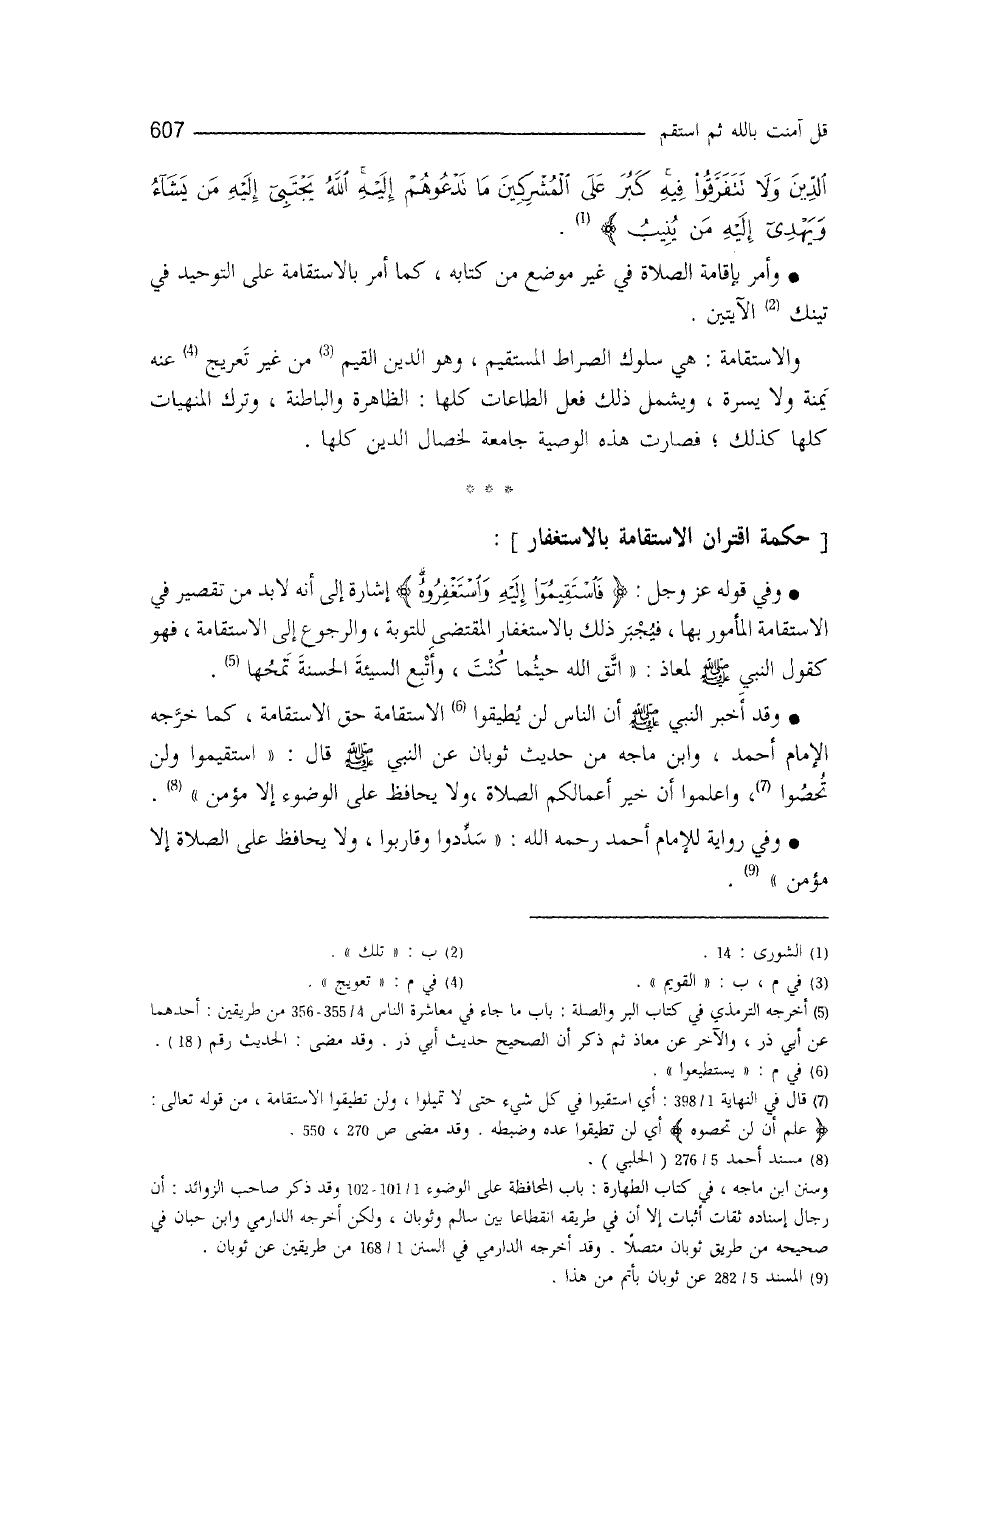 قل آمنت بالله ثم استقم 607
ٱلدِّينَ وَلَا تَتَفَرَّقُوا۟ فِيهِ كَبُرَ عَلَى ٱلْمُشْرِكِينَ مَا تَدْعُوهُمْ إِلَيْهِ ٱللَّهُ يَجْتَبِىٓ إِلَيْهِ مَن يَشَآءُ
وَيَهْدِىٓ إِلَيْهِ مَن يُنِيبُ ﴾ (1) .
● وأمر بإقامة الصلاة في غير موضع من كتابه ، كما أمر بالاستقامة على التوحيد في
تينك (2) الآيتين .
والاستقامة : هي سلوك الصراط المستقيم ، وهو الدين القيم (3) من غير تَعريج (4) عنه
يَمنة ولا يسرة ، ويشمل ذلك فعل الطاعات كلها : الظاهرة والباطنة ، وترك المنهيات
كلها كذلك ؛ فصارت هذه الوصية جامعة لخصال الدين كلها .
* * *
[ حكمة اقتران الاستقامة بالاستغفار ] :
● وفي قوله عز وجل : ﴿ فَٱسْتَقِيمُوٓا۟ إِلَيْهِ وَٱسْتَغْفِرُوهُ ﴾ إشارة إلى أنه لابد من تقصير في
الاستقامة المأمور بها ، فيُجْبَر ذلك بالاستغفار المقتضي للتوبة ، والرجوع إلى الاستقامة ، فهو
كقول النبي ﷺ لمعاذ : « اتَّق الله حيثُما كُنْتَ ، وأَتْبِع السيئةَ الحسنةَ تَمحُها (5) .
● وقد أَخبر النبي ﷺ أن الناس لن يُطيقوا (6) الاستقامة حق الاستقامة ، كما خرَّجه
الإمام أحمد ، وابن ماجه من حديث ثوبان عن النبي ﷺ قال : « استقيموا ولن
تُحصُوا (7)، واعلموا أن خير أعمالكم الصلاة ،ولا يحافظ على الوضوء إلا مؤمن » (8) .
● وفي رواية للإمام أحمد رحمه الله : « سَدِّدوا وقاربوا ، ولا يحافظ على الصلاة إلا
مؤمن » (9) .
(1) الشورى : 14 . (2) ب : « تلك » .
(3) في م ، ب : « القويم » . (4) في م : « تعويج » .
(5) أخرجه الترمذي في كتاب البر والصلة : باب ما جاء في معاشرة الناس 4/ 355-356 من طريقين : أحدهما
عن أبي ذر ، والآخر عن معاذ ثم ذكر أن الصحيح حديث أبي ذر . وقد مضى : الحديث رقم ( 18 ) .
(6) في م : « يستطيعوا » .
(7) قال في النهاية 1/ 398 : أي استقيوا في كل شيء حتى لا تميلوا ، ولن تطيقوا الاستقامة ، من قوله تعالى :
﴿ علم أن لن تحصوه ﴾ أي لن تطيقوا عده وضبطه . وقد مضى ص 270 ، 550 .
(8) مسند أحمد 5 / 276 ( الحلبي ) .
وسنن ابن ماجه ، في كتاب الطهارة : باب المحافظة على الوضوء 1/ 101-102 وقد ذكر صاحب الزوائد : أن
رجال إسناده ثقات أثبات إلا أن في طريقه انقطاعا بين سالم وثوبان ، ولكن أخرجه الدارمي وابن حبان في
صحيحه من طريق ثوبان متصلًا . وقد أخرجه الدارمي في السنن 1 / 168 من طريقين عن ثوبان .
(9) المسند 5 / 282 عن ثوبان بأتم من هذا .